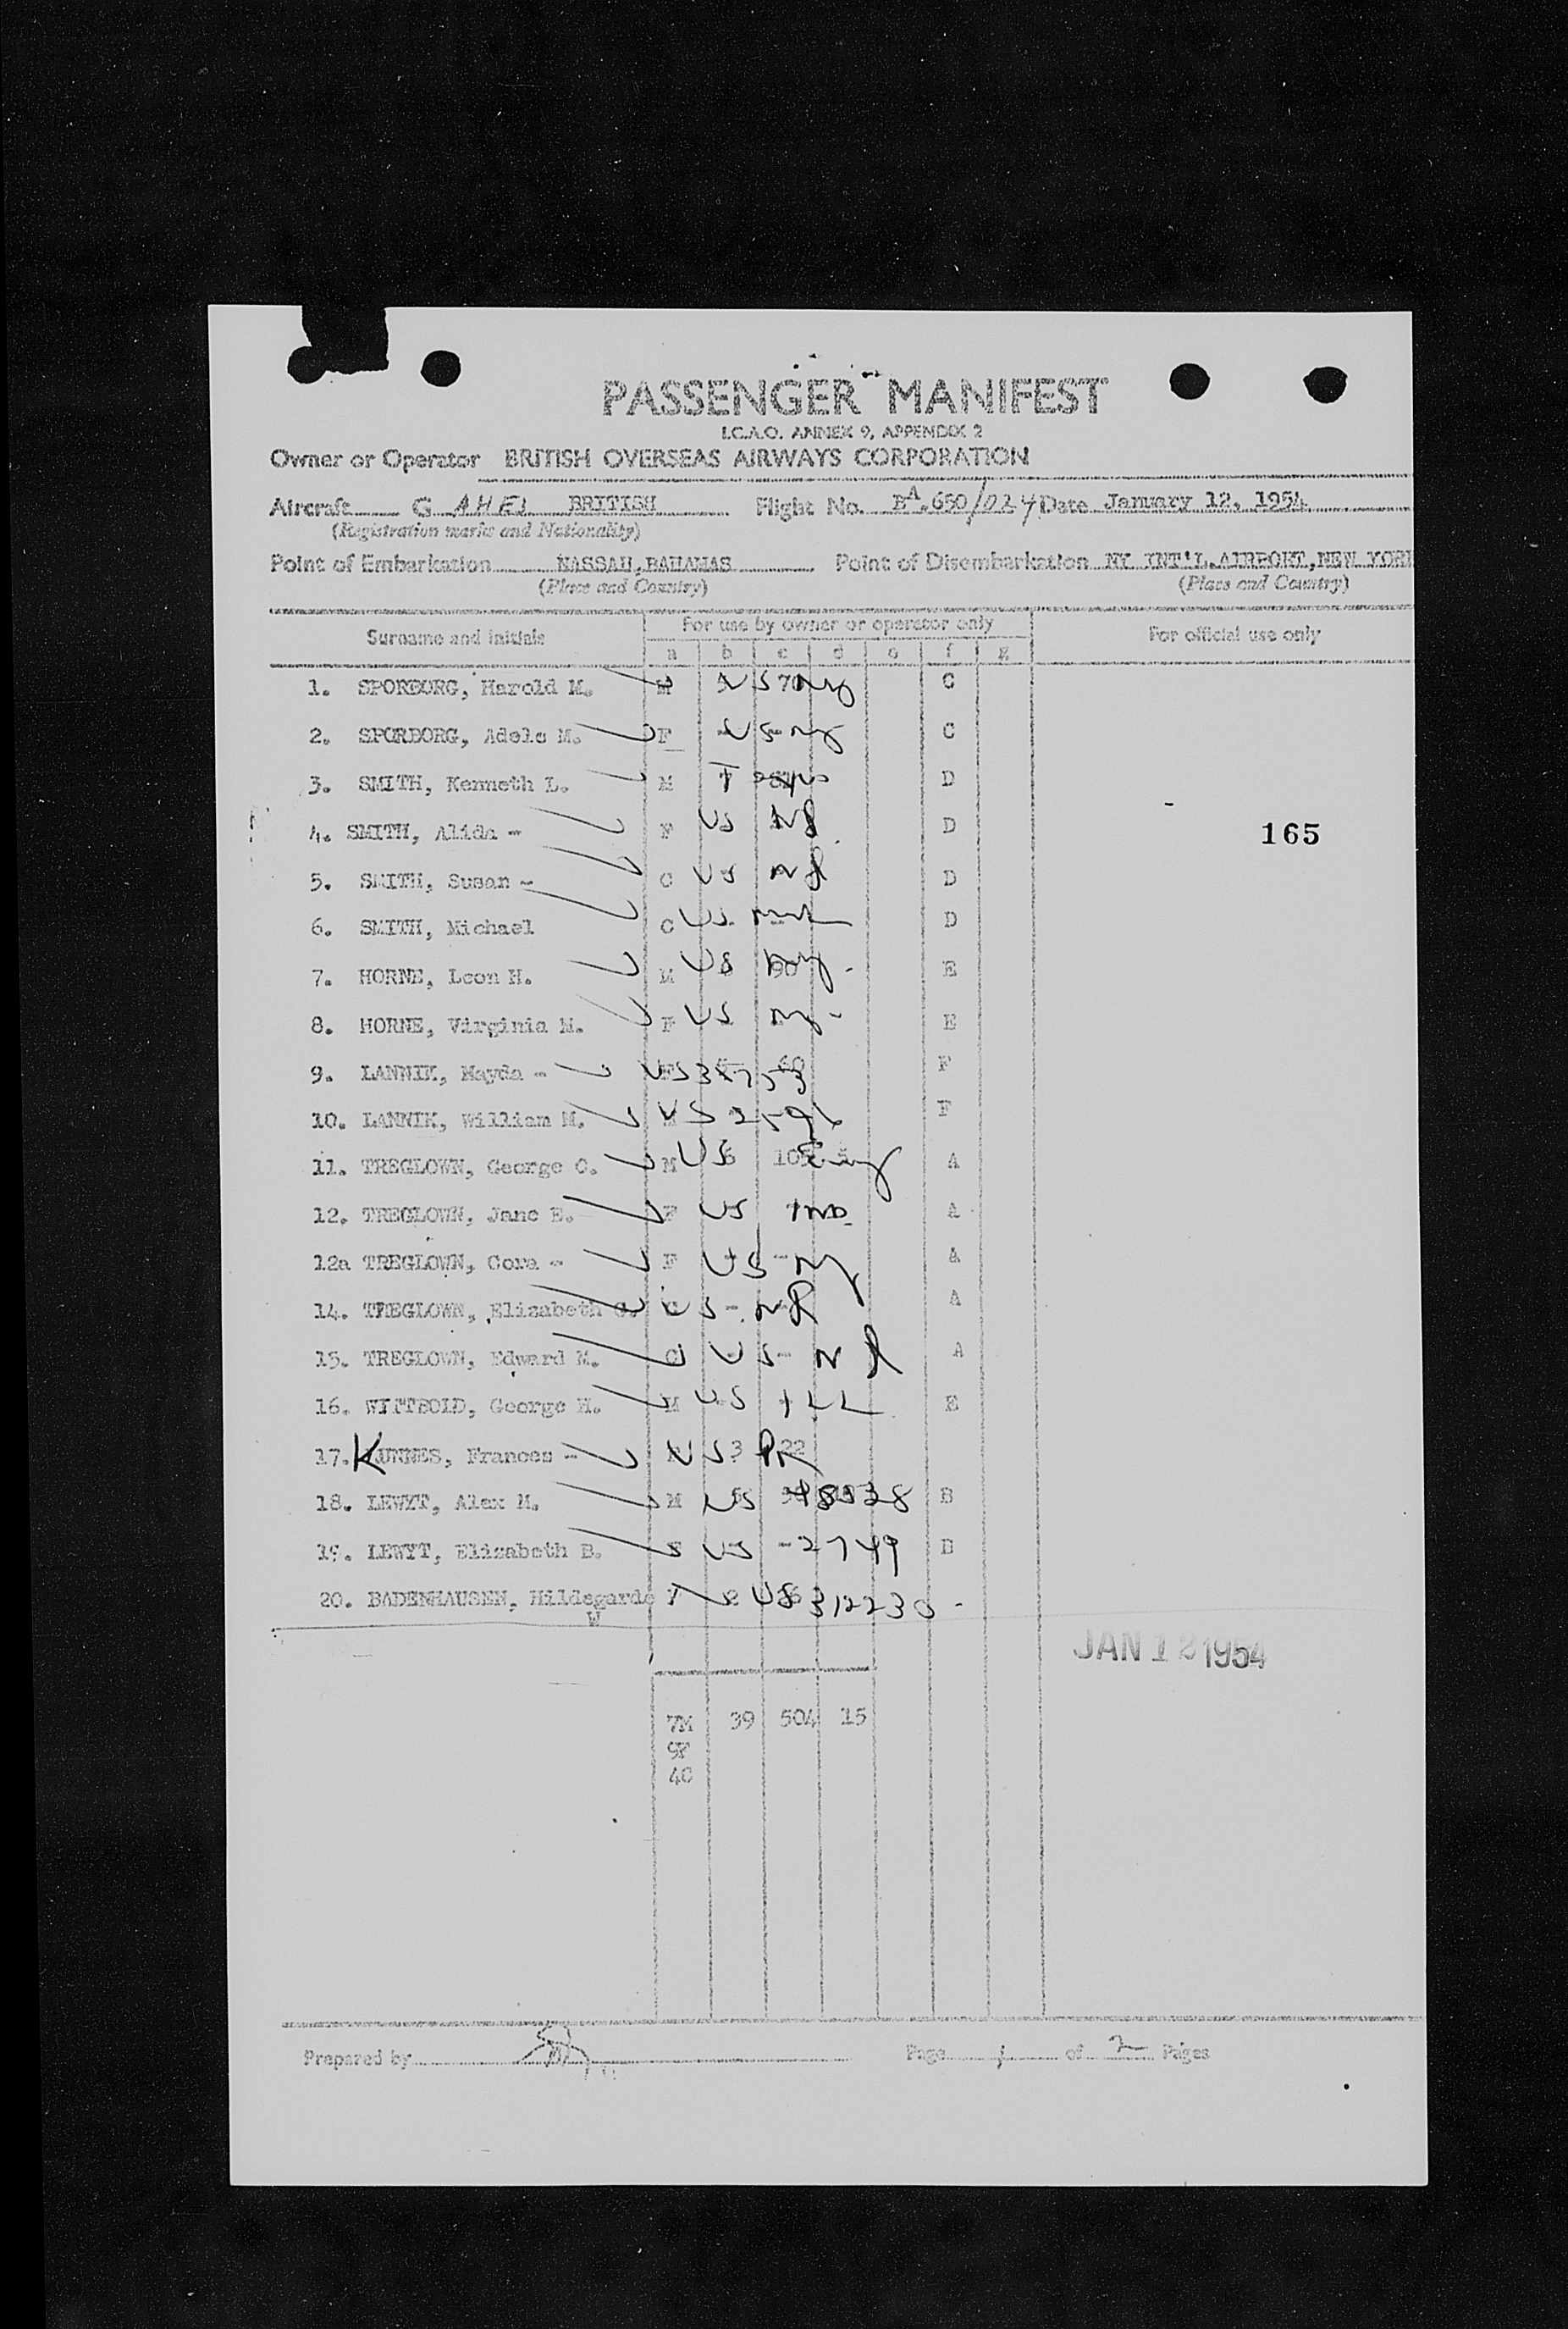 PASSENGER MANIFEST
I.C.A.O. ANNEX 9, APPENDIX 2
Owner or Operator BRITISH OVERSEAS AIRWAYS CORPORATION
Aircraft G AHEL BRITISH Flight No. BA.650/024 Date January 12, 1954
(Registration marks and Nationality)
Point of Embarkation NASSAU, BAHAMAS Point of Disembarkation NY INT'L.AIRPORT, NEW YORK
(Place and Country) (Place and Country)
Surname and initials For use by owner or operator only For official use only
a b c d e f g
1. SPORBORG, Harold M. M US 70 ny C
2. SPORBORG, Adele M. F US - ny C
3. SMITH, Kenneth L. M D
4. SMITH, Alida - F US D
165
5. SMITH, Susan - C US D
6. SMITH, Michael C US D
7. HORNE, Leon H. M US 90 E
8. HORNE, Virginia M. F US ny - E
9. LANNIK, Mayda - F US F
10. LANNIK, William M. M US F
11. TREGLOWN, George C. M US A
12. TREGLOWN, Jane E. F US A
12a TREGLOWN, Cora - F US - ny A
14. TREGLOWN, Elizabeth C. C US - A
15. TREGLOWN, Edward M. C US - A
16. WITTBOLD, George H. M US ILL E
17. KURNES, Frances - US 3 22
18. LEWYT, Alex M. M US B
19. LEWYT, Elizabeth B. F US - 2749 B
20. BADENHAUSEN, Hildegarde F 2 US 312230 -
W
JAN 12 1954
7M 39 504 15
9F
4C
Prepared by Page 1 of 2 Pages